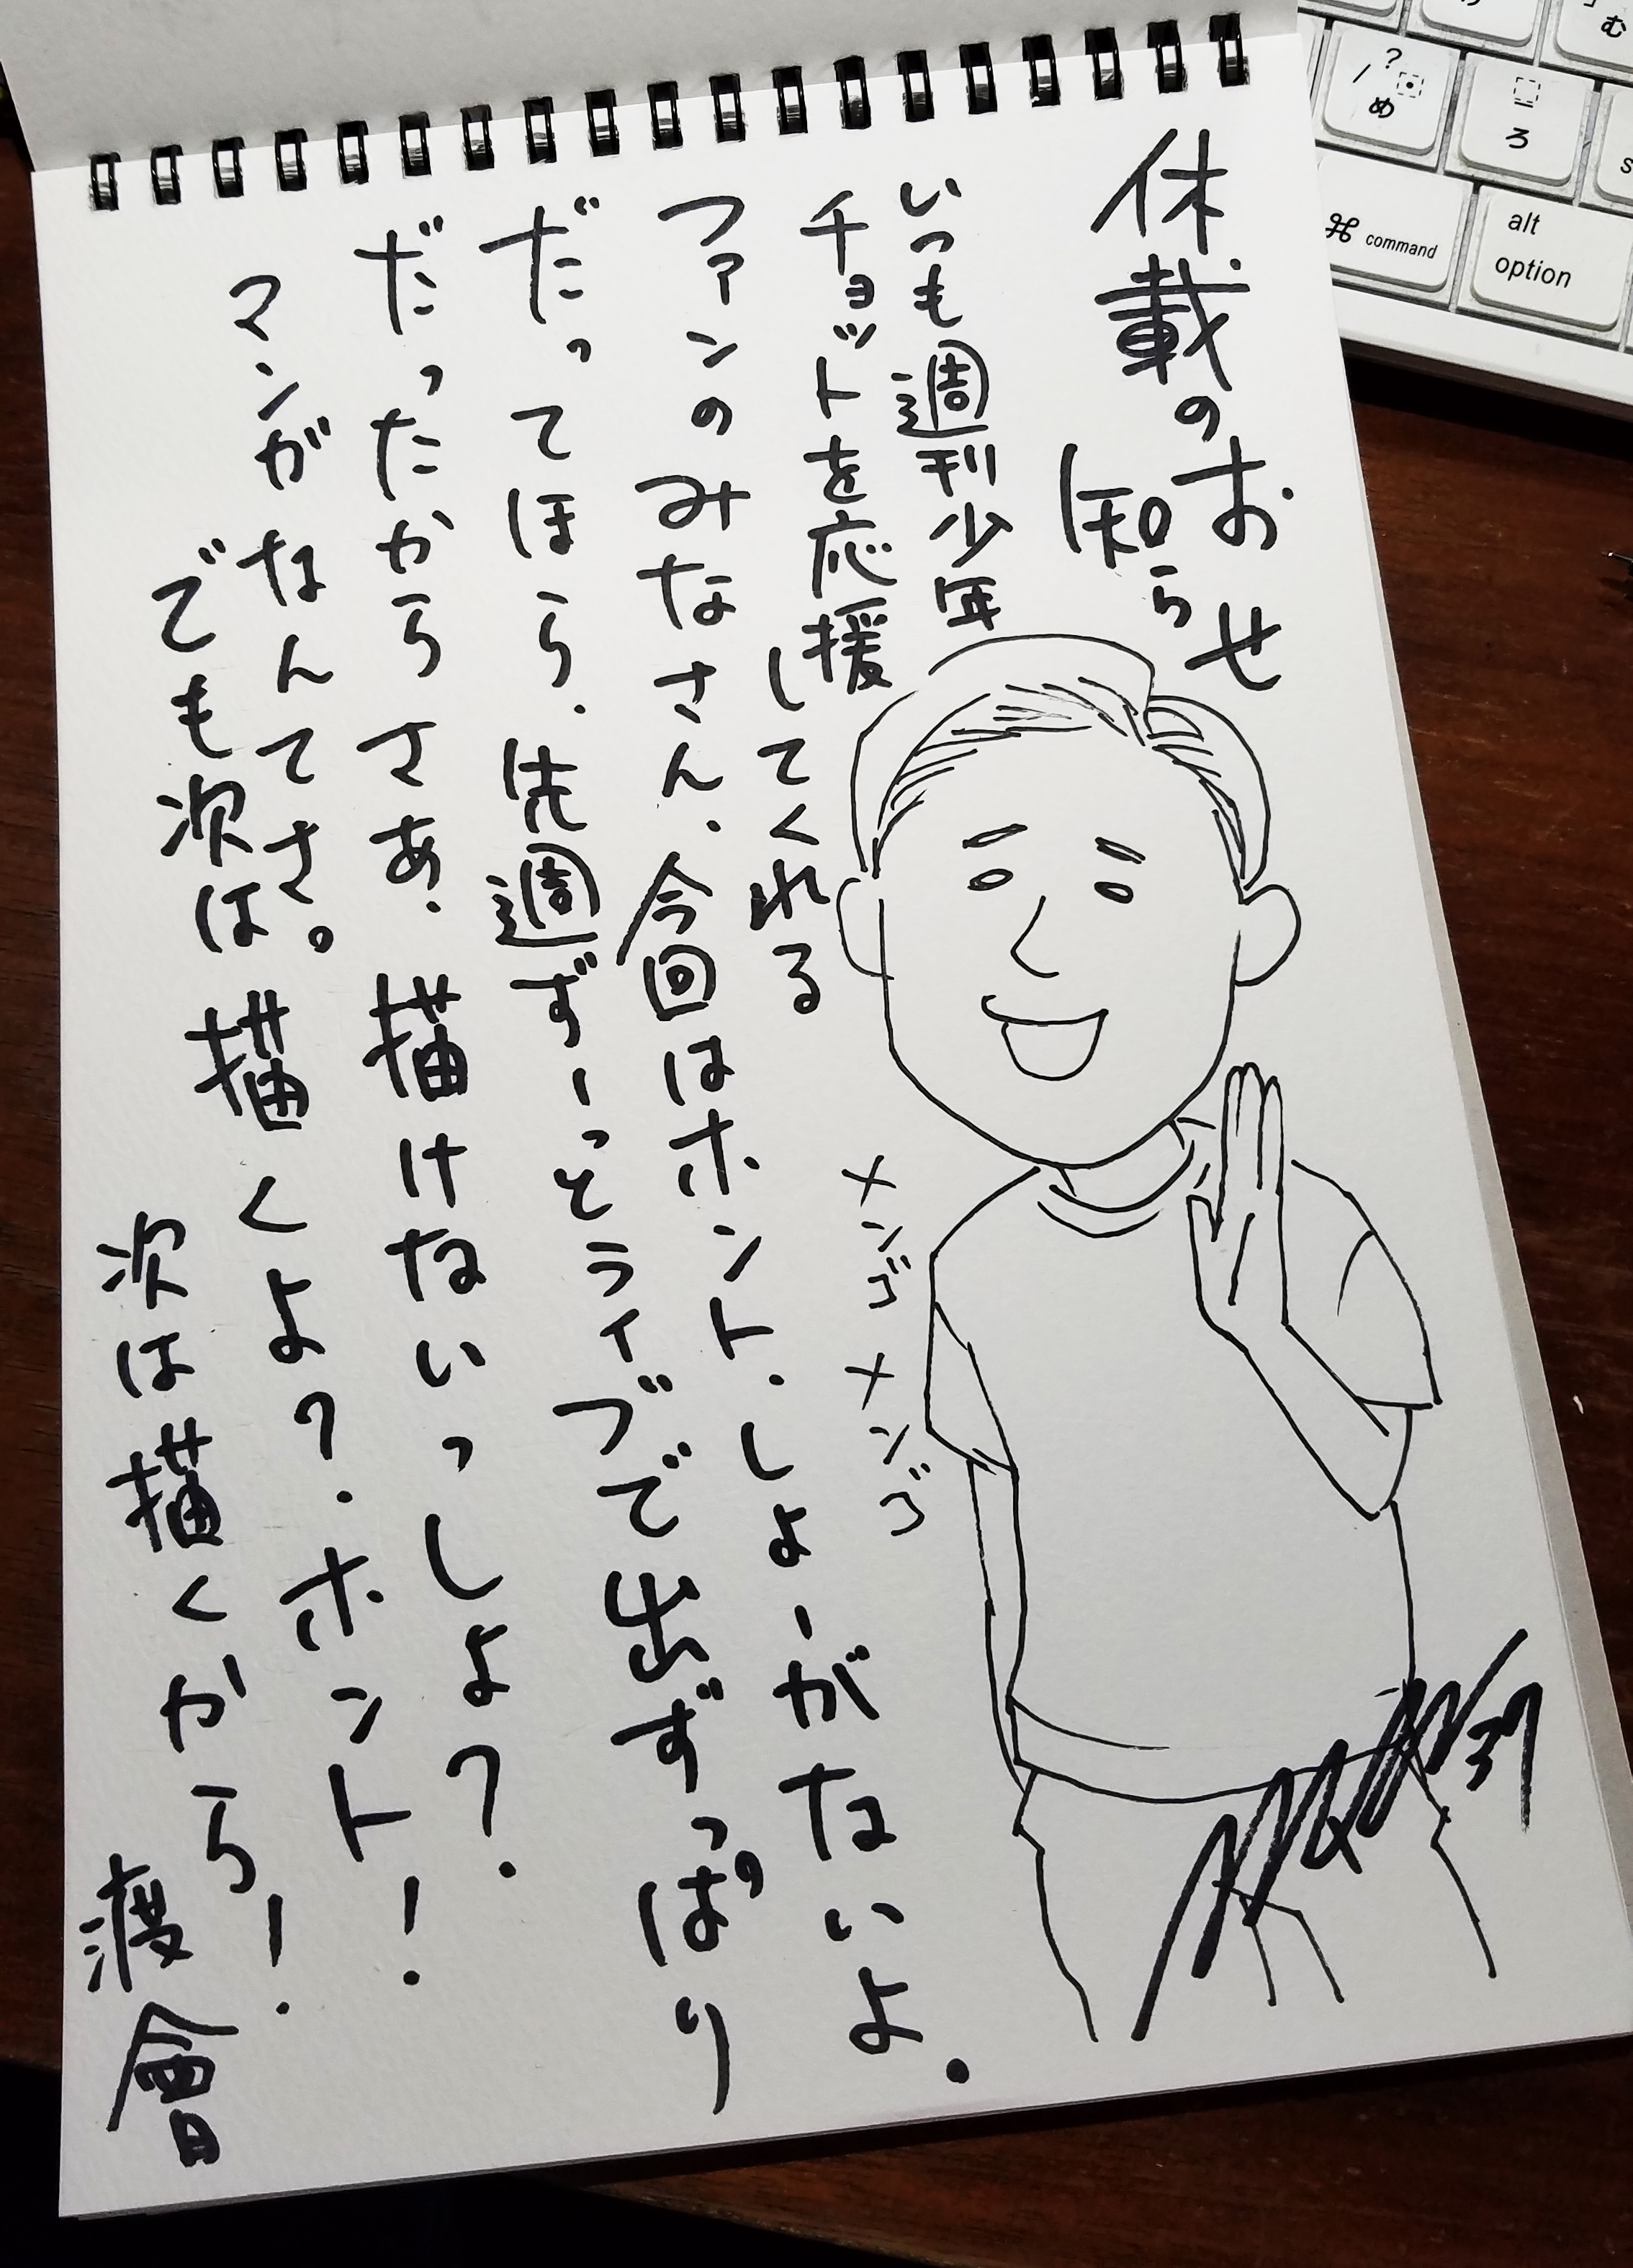 休載のお
知らせ
いつも週刊少年
チョットを応援
してくれる
ファンのみなさん.今回はホント.しょーがないよ.
だってほら.先週ずーっとライブで出ずっぱり
だったからさぁ.描けないっしょ?.
マンガなんてさ。
でも次は描くよ?.ホント!
次は描くから!
渡會
メンゴ
メンゴ
?
/
め
ろ
む
⌘ command
alt
option